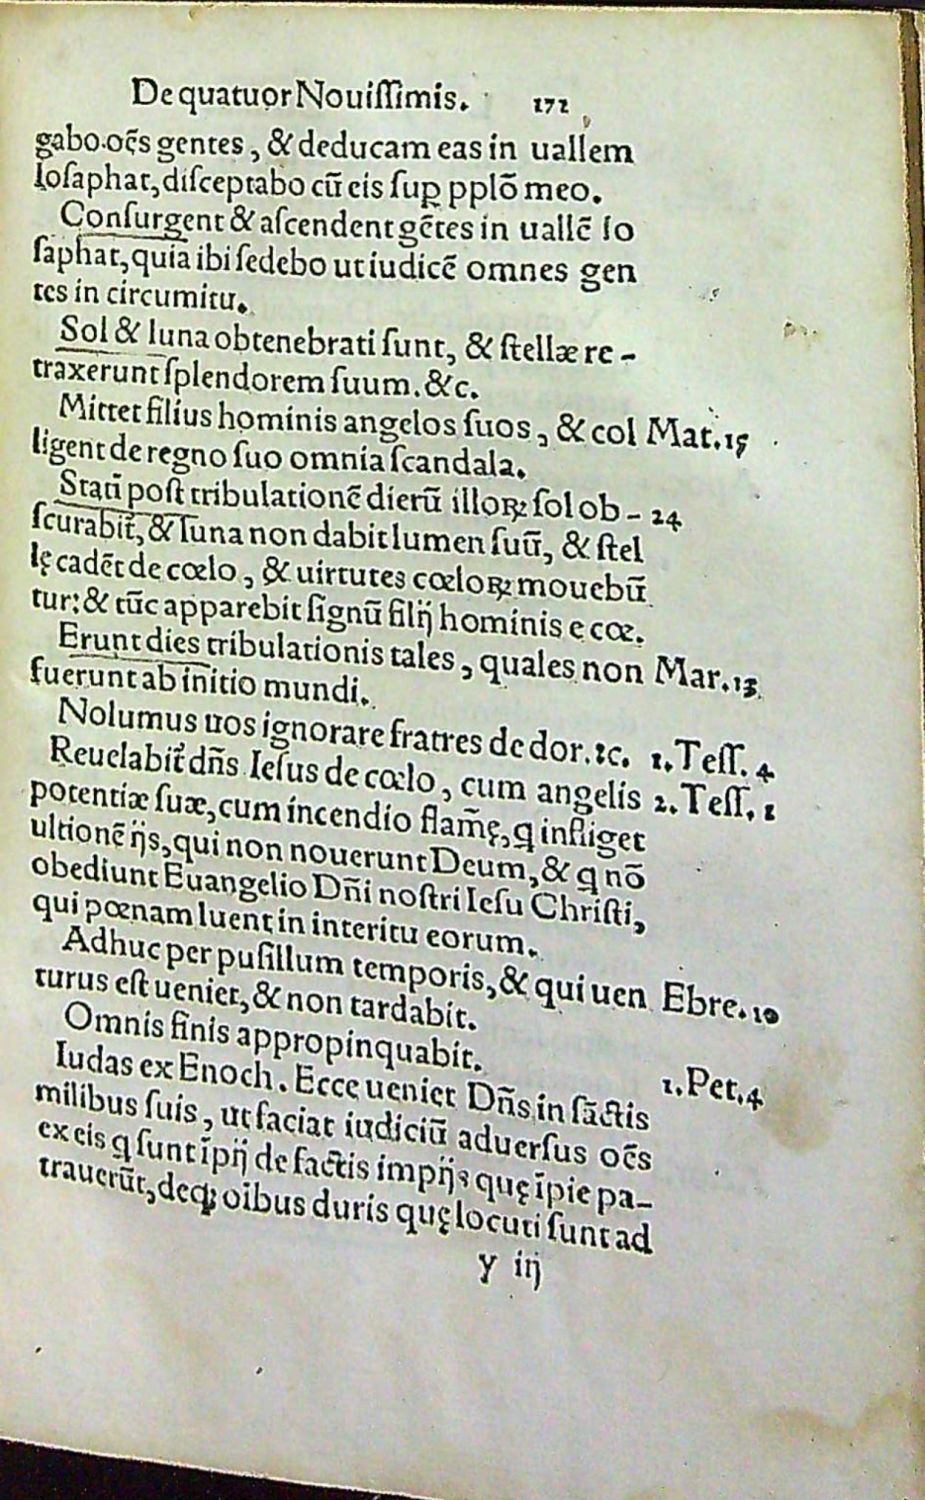 De quatuor Nouiſſimis. 172
gabo oẽs gentes, & deducam eas in uallem
Ioſaphat, diſceptabo cũ eis ſuꝑ pplõ meo.
Conſurgent & aſcendent gẽtes in uallẽ Io
ſaphat, quia ibi ſedebo ut iudicẽ omnes gen
tes in circumitu.
Sol & luna obtenebrati ſunt, & ſtellæ re-
traxerunt ſplendorem ſuum. &c.
Mittet filius hominis angelos ſuos, & col Mat.15
ligent de regno ſuo omnia ſcandala.
Statĩ poſt tribulationẽ dierũ illoꝝ ſol ob- 24
ſcurabit̃, & luna non dabit lumen ſuũ, & ſtel
lę cadẽt de cœlo, & uirtutes cœloꝝ mouebũ
tur: & tũc apparebit ſignũ filij hominis e cœ.
Erunt dies tribulationis tales, quales non Mar.13
fuerunt ab initio mundi.
Nolumus uos ignorare fratres de dor. ⁊c. 1. Teſſ. 4
Reuelabit̃ dñs Ieſus de cœlo, cum angelis 2. Teſſ. 1
potentiæ ſuæ, cum incendio flam̃ę, ꝗ infliget
ultionẽ ijs, qui non nouerunt Deum, & ꝗ nõ
obediunt Euangelio Dñi noſtri Ieſu Chriſti,
qui pœnam luent in interitu eorum.
Adhuc per puſillum temporis, & qui uen Ebre. 10
turus eſt ueniet, & non tardabit.
Omnis finis appropinquabit. 1. Pet. 4
Iudas ex Enoch. Ecce ueniet Dñs in ſãctis
milibus ſuis, ut faciat iudiciũ aduerſus oẽs
ex eis ꝗ ſunt ĩpij de factis impijs quę ĩpie pa-
trauerũt, deq; oĩbus duris quę locuti ſunt ad
y iij